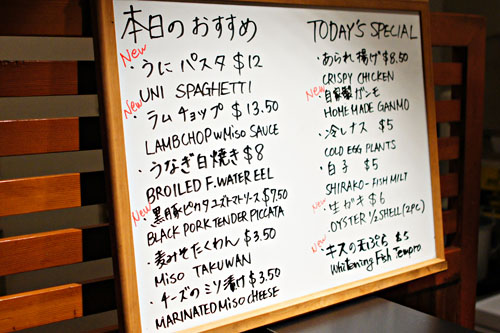 本日のおすすめ
New
・うに パスタ $12
UNI SPAGHETTI
New
・ラム チョップ $13.50
LAMBCHOP w Miso SAUCE
・うなぎ白焼き $8
BROILED F.WATER EEL
New
・黒豚ピカタ トマトソース $7.50
BLACK PORK TENDER PICCATA
・麦みそたくわん $3.50
MISO TAKUWAN
・チーズのミソ漬け $3.50
MARINATED MISO CHEESE
TODAY'S SPECIAL
・あられ揚げ $8.50
CRISPY CHICKEN
New
・自家製ガンモ
HOMEMADE GANMO
・冷しナス $5
COLD EGG PLANTS
・白子 $5
SHIRAKO-FISH MILT
New
・生ガキ $6
OYSTER ½ SHELL (2PC)
New
・キスの天ぷら $5
Whitening Fish Tempro